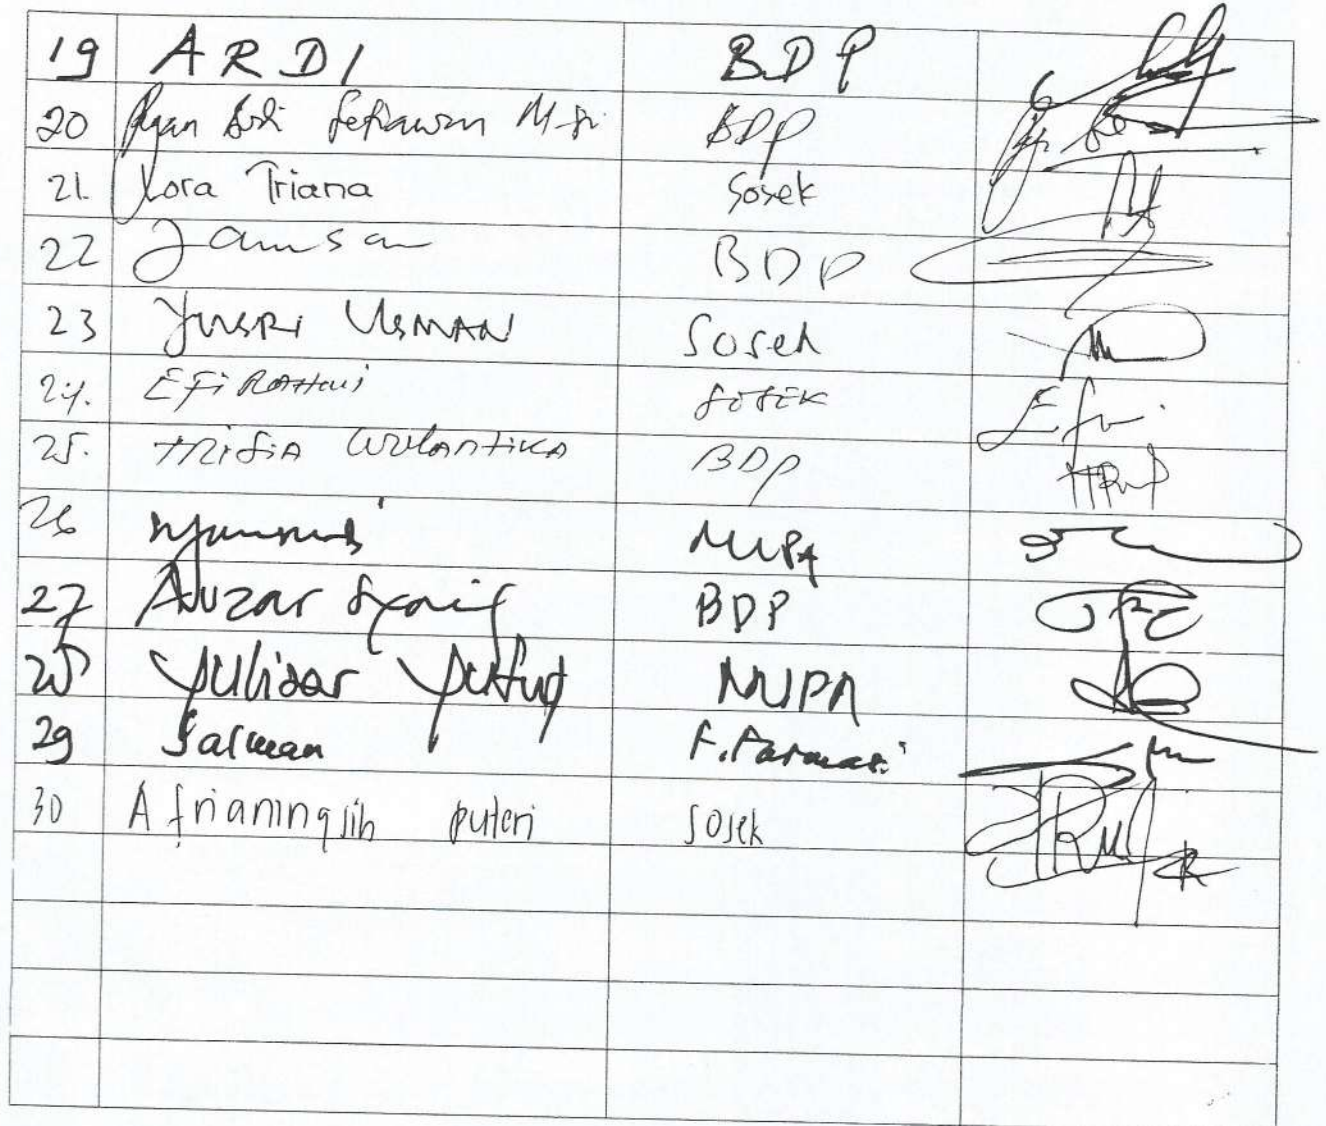 19 ARDI BDP
20 Ryan Budi Setiawan M-Si BDP
21. Yora Triana Sosek
22 Jamsan BDP
23 Yusri Usman Sosek
24. Efi Rahmi Sosek
25. Trisia Wulantika BDP
26 MIPA
27 Auzar Syarif BDP
28 Yulizar Yusuf MIPA
29 Salman F. Farmasi
30 Afrianingsih puteri Sosek